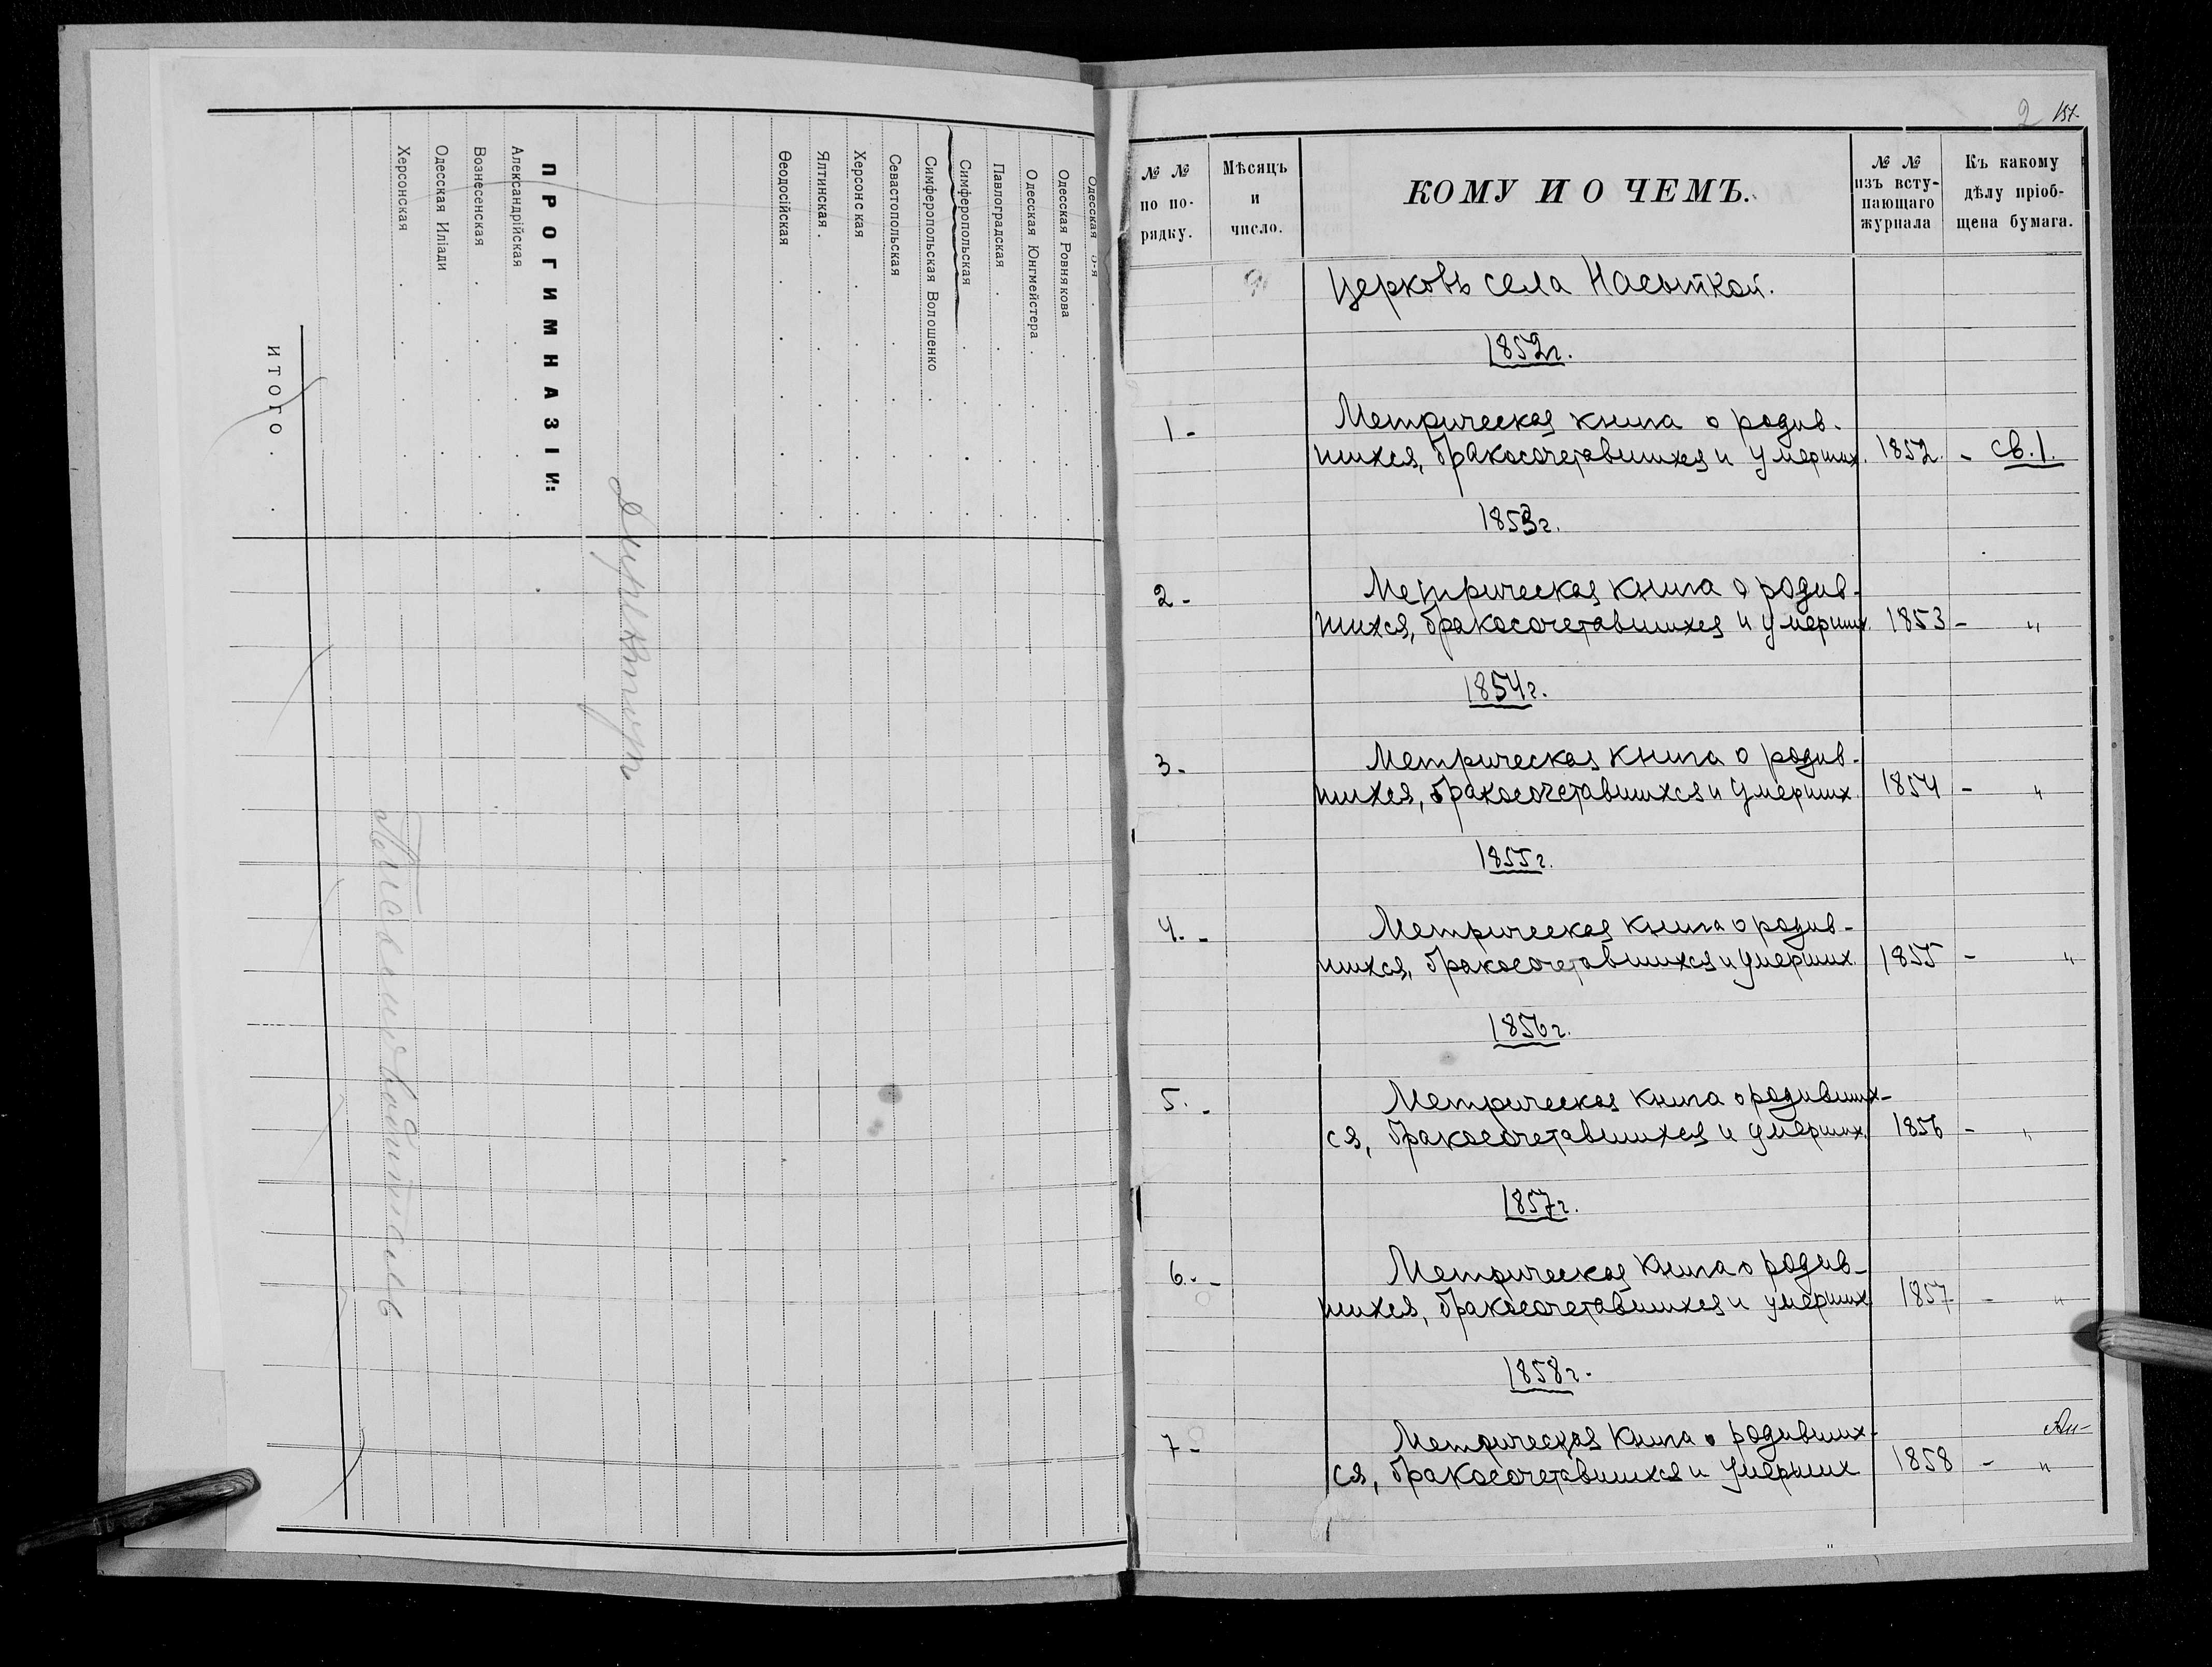 Одесская 5-я
Одесская Ровнякова
Одесская Юнгмейстера
Павлоградская
Симферопольская
Симферопольская Волошенко
Севастопольская
Херсонская
Ялтинская
Ѳеодосійская
ПРОГИМНАЗІИ:
Александрійская
Вознесенская
Одесская Иліади
Херсонская
ИТОГО
2 157.
№ №
по по-
рядку.
Мѣсяцъ
и
число.
КОМУ И О ЧЕМЪ.
№ №
изъ всту-
пающаго
журнала
Къ какому
дѣлу пріоб-
щена бумага.
Церковь села
1852г.
1 - Метрическая книга о родив-
шихся, бракосочетавшихся и умерших. 1852. - св. 1.
1853г.
2 - Метрическая книга о родив-
шихся, бракосочетавшихся и умерших. 1853 - "
1854г.
3 - Метрическая книга о родив-
шихся, бракосочетавшихся и умерших 1854 - "
1855г.
4. - Метрическая книга о родив-
шихся, бракосочетавшихся и умерших 1855 - "
1856г.
5. - Метрическая книга о родивших-
ся, бракосочетавшихся и умерших. 1856 - "
1857г.
6. - Метрическая книга о родив-
шихся, бракосочетавшихся и умерших 1857 - "
1858г.
7 - Метрическая книга о родивших-
ся, бракосочетавшихся и умерших 1858 - "